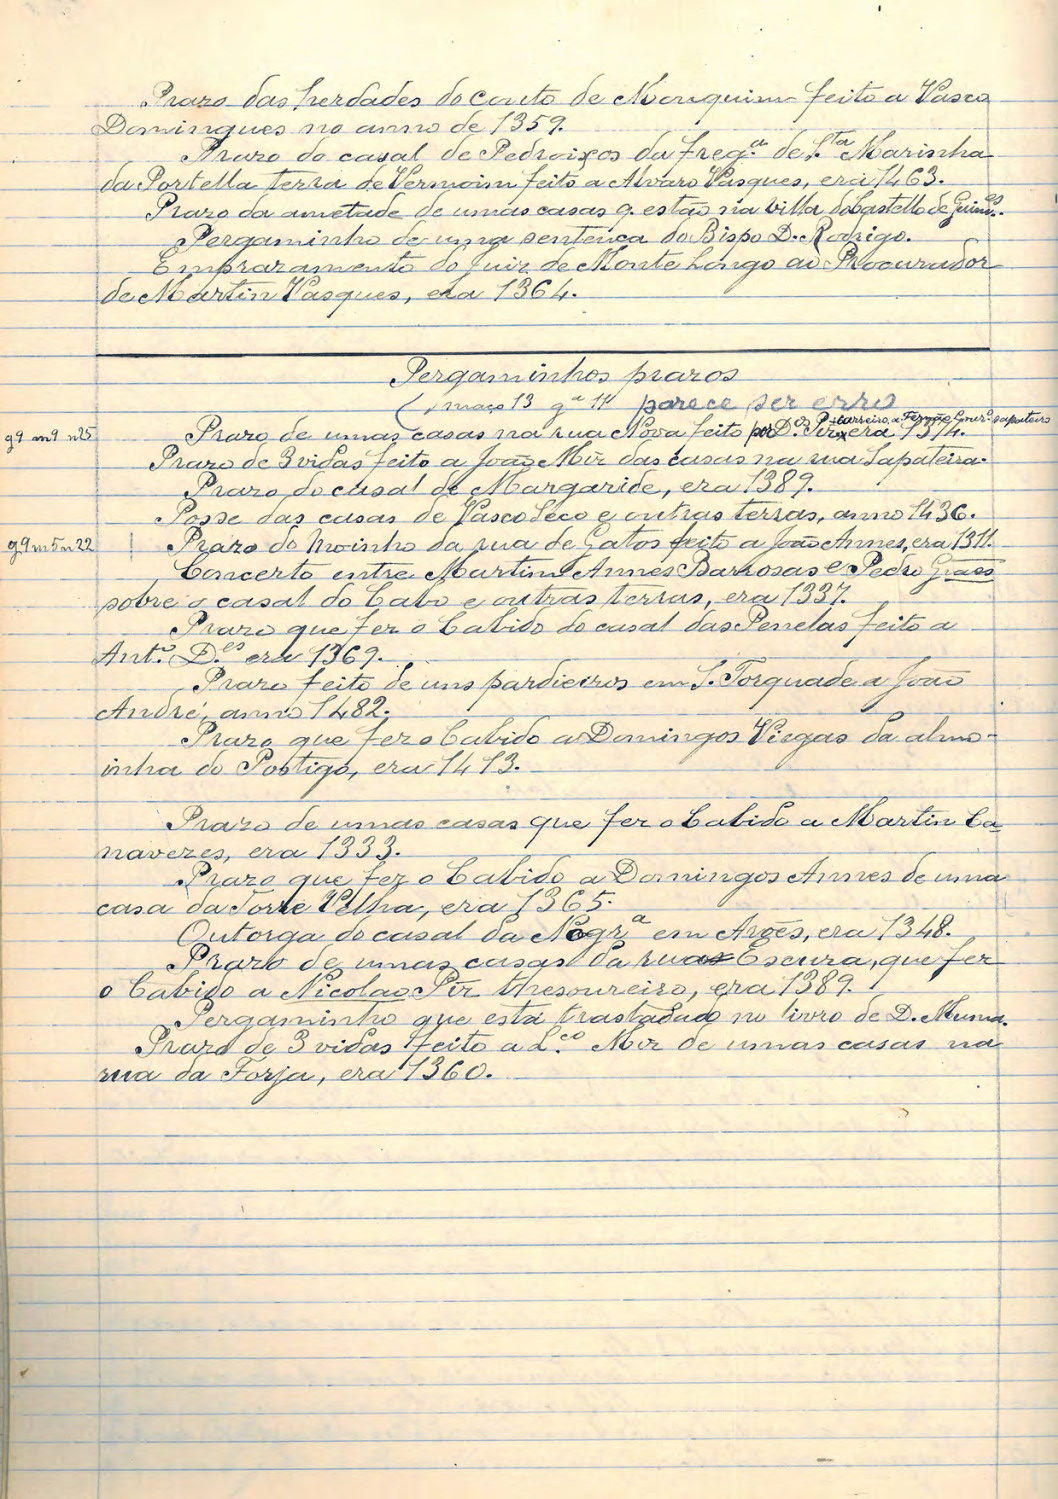 Prazo das herdades do couto de Mouquim feito a Vasco
Domingues no anno de 1359.
Prazo do casal de Pedroiços da freg.ª de S.ta Marinha
da Portella terra de Vermoim feito a Alvaro Vasques, era 1463.
Prazo da ametade de umas casas q. estão na villa do Castello de Guim.es.
Pergaminho de uma sentença do Bispo D. Rodrigo.
Emprazamento do Juiz de Monte Longo ao Procurador
de Martin Vasques, era 1364.
Pergaminhos prazos
(maço 13 g.ª 11 parece ser erro
g 9 m 9 n 25 Prazo de umas casas na rua Nova feito por D.º Pirz carreiro, a Fernão Gonz.º sapateiro era 1374.
Prazo de 3 vidas feito a João Miz das casas na rua Sapateira.
Prazo do casal de Margaride, era 1389.
Posse das casas de Vasco Seco e outras terras, anno 1436.
g 9 m 5 n 22 Prazo do Moinho da rua de Gatos feito a João Annes, era 1311.
Concerto entre Martim Annes Barrosas e Pedro Graes
sobre o casal do Cabo e outras terras, era 1337.
Prazo que fez o Cabido do casal das Penelas feito a
Ant.º D.es era 1369.
Prazo feito de uns pardieiros em S. Torquade a João
André, anno 1482.
Prazo que fez o Cabido a Domingos Viegas da almo-
inha do Postigo, era 1413.
Prazo de umas casas que fez o Cabido a Martin Ca-
navezes, era 1333.
Prazo que fez o Cabido a Domingos Annes de uma
casa da Torre Velha, era 1365.
Outorga do casal da Nogr.ª em Arões, era 1348.
Prazo de umas casas da rua Escura, que fez
o Cabido a Nicolao Piz thesoureiro, era 1389.
Pergaminho que está trasladado no livro de D. Muma.
Prazo de 3 vidas feito a L.ço Miz de umas casas na
rua da Forja, era 1360.